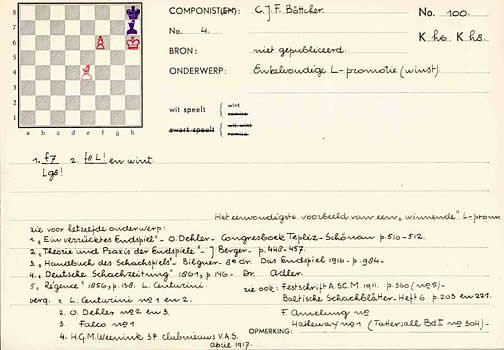 COMPONIST(EN): C.J.F. Böttcher No. 100.
No. 4. K h6 K h8.
BRON: niet gepubliceerd.
ONDERWERP: Eenvoudige L-promotie (winst).
8
7
6
5
4
3
2
1
a b c d e f g h
wit speelt { wint remise
zwart speelt { wit wint remise
1. f7 2. f8L! en wint
Lg8!
Het eenvoudigste voorbeeld van een „winnende" L-prom
zie voor hetzelfde onderwerp:
1. „Ein verrücktes Endspiel" - O. Dehler - Congresboek Teplitz-Schönau p. 510-512.
2. „Theorie und Praxis der Endspiele" - J. Berger - p. 448-457.
3. „Handbuch des Schachspiels" - Bilguer - 8e dr. Das Endspiel 1916 - p. 984.
4. „Deutsche Schachzeitung" 1861, p. 146. Dr. Adler.
5. „Régence" 1856, p. 138. L. Centurini. zie ook: Festschrift A.SC.M. 1911. p. 360 (no 5)
verg. 1. L. Centurini no 1 en 2. Baltische Schachblätter - Heft 6 p. 203 en 221.
2. O. Dehler no 2 en 3. F. Amelung no
3. Falco no 1 Hatheway no 1 (Tattersall Bd I no 304)
4. H.G.M. Weenink 3e Clubnieuws V.A.S. OPMERKING:
april 1917.